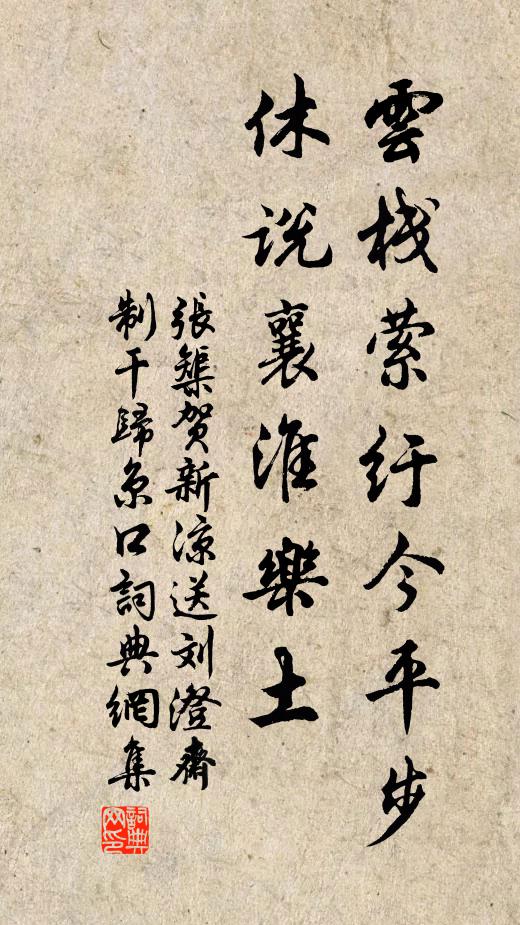 雲棧縈紆今平步
休说襄淮樂土
張榘贺新凉送刘澄齋
制干歸京口詞典網集
詞典网印